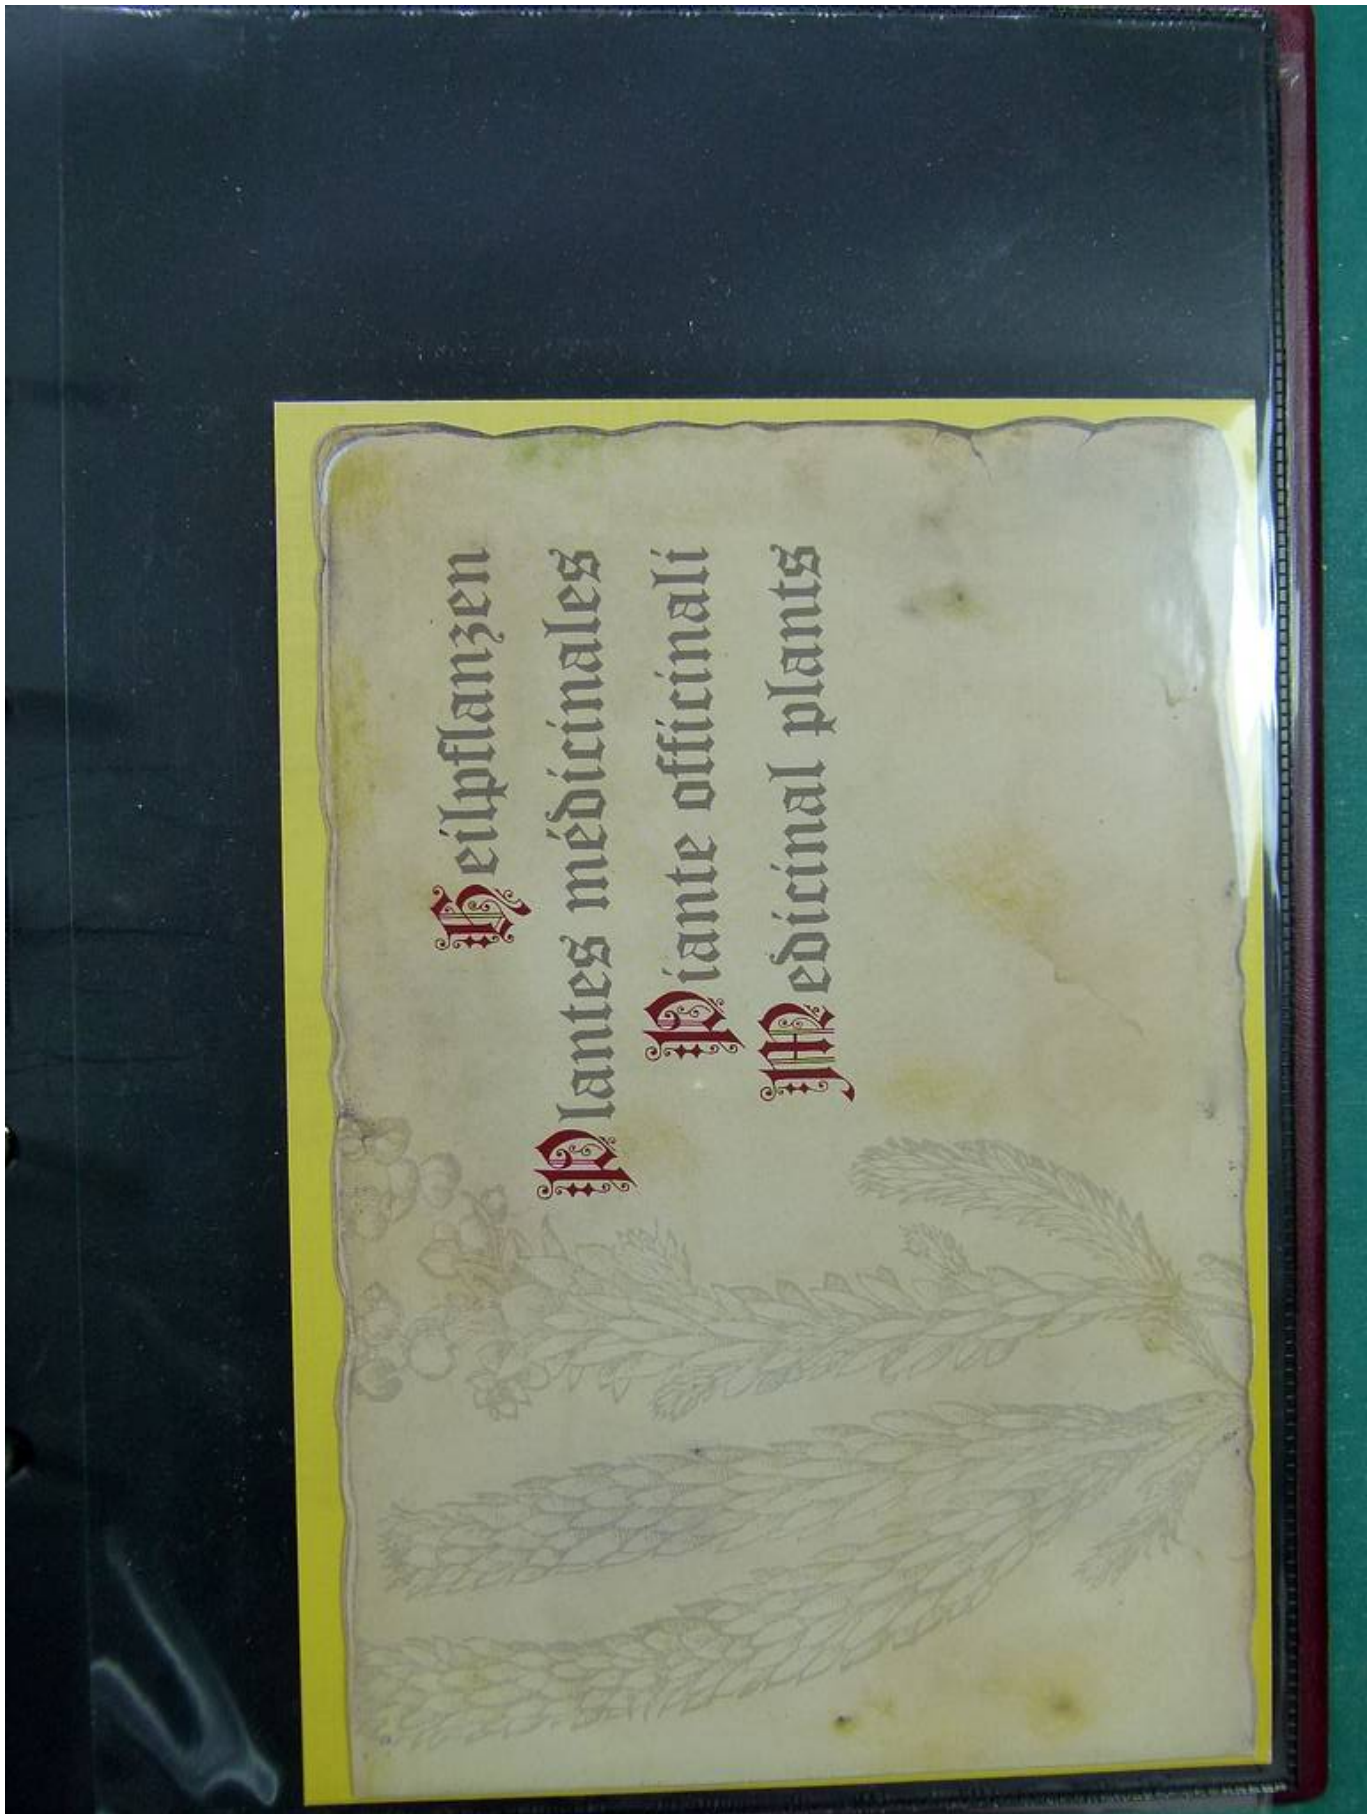 Heilpflanzen
Plantes médicinales
Piante officinali
Medicinal plants